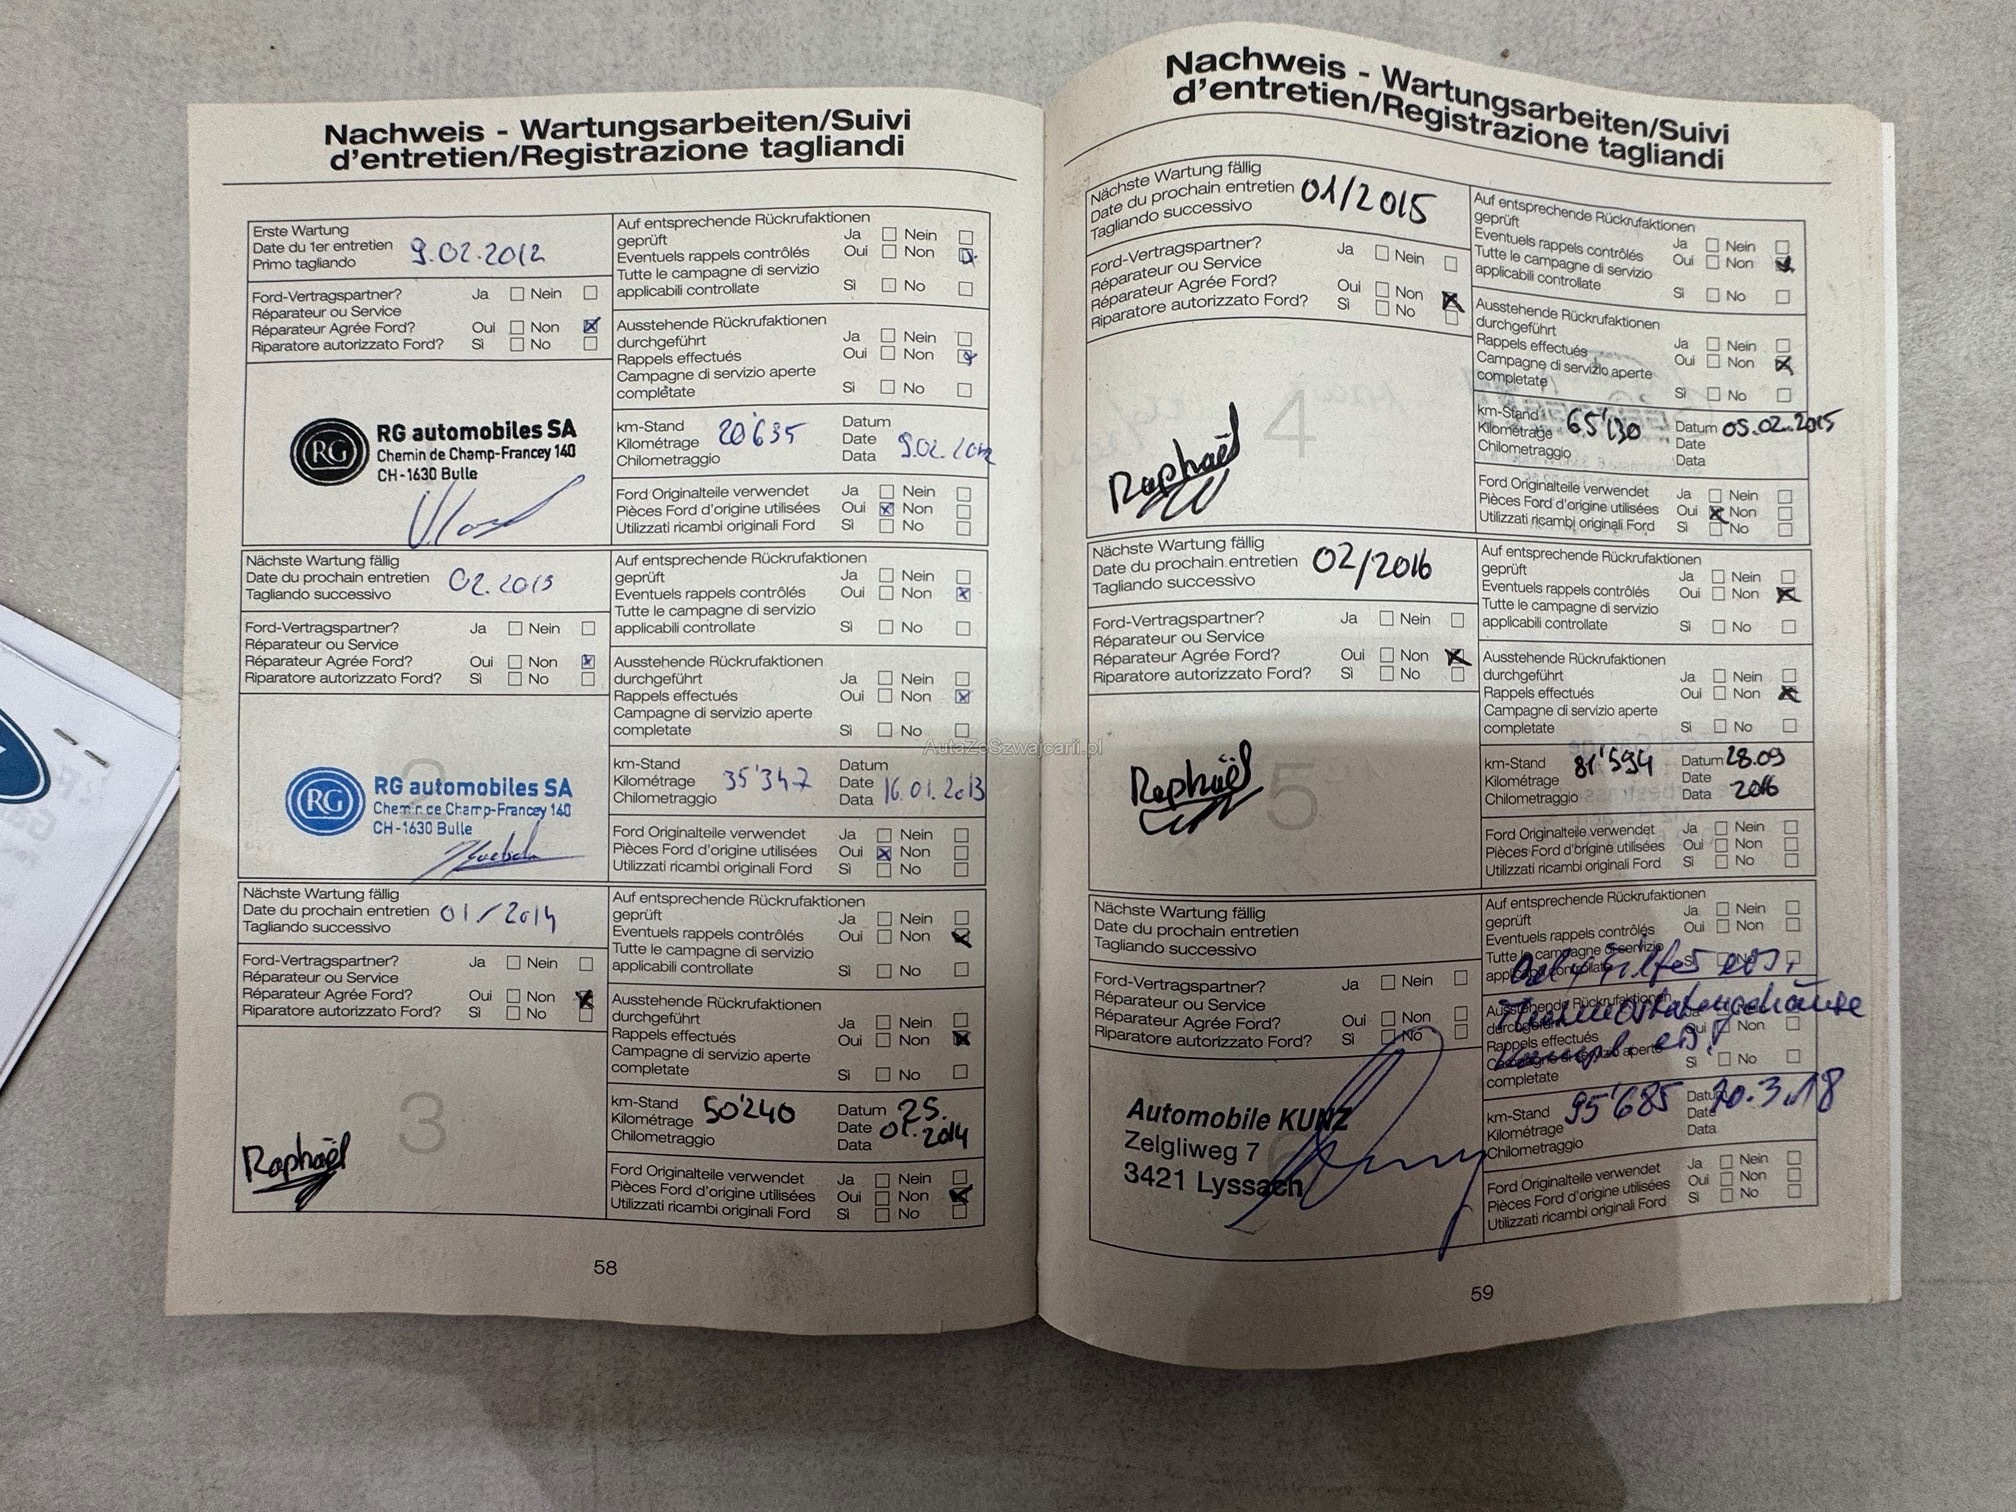 Nachweis - Wartungsarbeiten/Suivi
d'entretien/Registrazione tagliandi
Erste Wartung
Date du 1er entretien 9.02.2012
Primo tagliando
Ford-Vertragspartner? Ja Nein
Réparateur ou Service
Réparateur Agrée Ford? Oui Non
Riparatore autorizzato Ford? Sì No
RG
RG automobiles SA
Chemin de Champ-Francey 140
CH-1630 Bulle
Auf entsprechende Rückrufaktionen
geprüft Ja Nein
Eventuels rappels contrôlés Oui Non
Tutte le campagne di servizio
applicabili controllate Sì No
Ausstehende Rückrufaktionen
durchgeführt Ja Nein
Rappels effectués Oui Non
Campagne di servizio aperte
completate Sì No
km-Stand Datum
Kilométrage 20'635 Date 9.02.2012
Chilometraggio Data
Ford Originalteile verwendet Ja Nein
Pièces Ford d'origine utilisées Oui Non
Utilizzati ricambi originali Ford Sì No
Nächste Wartung fällig
Date du prochain entretien 02.2013
Tagliando successivo
Ford-Vertragspartner? Ja Nein
Réparateur ou Service
Réparateur Agrée Ford? Oui Non
Riparatore autorizzato Ford? Sì No
2
RG
RG automobiles SA
Chemin de Champ-Francey 140
CH-1630 Bulle
Auf entsprechende Rückrufaktionen
geprüft Ja Nein
Eventuels rappels contrôlés Oui Non
Tutte le campagne di servizio
applicabili controllate Sì No
Ausstehende Rückrufaktionen
durchgeführt Ja Nein
Rappels effectués Oui Non
Campagne di servizio aperte
completate Sì No
km-Stand Datum
Kilométrage 35'347 Date 16.01.2013
Chilometraggio Data
Ford Originalteile verwendet Ja Nein
Pièces Ford d'origine utilisées Oui Non
Utilizzati ricambi originali Ford Sì No
Nächste Wartung fällig
Date du prochain entretien 01/2014
Tagliando successivo
Ford-Vertragspartner? Ja Nein
Réparateur ou Service
Réparateur Agrée Ford? Oui Non
Riparatore autorizzato Ford? Sì No
3
Raphaël
Auf entsprechende Rückrufaktionen
geprüft Ja Nein
Eventuels rappels contrôlés Oui Non
Tutte le campagne di servizio
applicabili controllate Sì No
Ausstehende Rückrufaktionen
durchgeführt Ja Nein
Rappels effectués Oui Non
Campagne di servizio aperte
completate Sì No
km-Stand 50'240 Datum 25.
Kilométrage Date 01.2014
Chilometraggio Data
Ford Originalteile verwendet Ja Nein
Pièces Ford d'origine utilisées Oui Non
Utilizzati ricambi originali Ford Sì No
58
Nachweis - Wartungsarbeiten/Suivi
d'entretien/Registrazione tagliandi
Nächste Wartung fällig
Date du prochain entretien 01/2015
Tagliando successivo
Ford-Vertragspartner? Ja Nein
Réparateur ou Service
Réparateur Agrée Ford? Oui Non
Riparatore autorizzato Ford? Sì No
4
Raphaël
Auf entsprechende Rückrufaktionen
geprüft Ja Nein
Eventuels rappels contrôlés Oui Non
Tutte le campagne di servizio
applicabili controllate Sì No
Ausstehende Rückrufaktionen
durchgeführt Ja Nein
Rappels effectués Oui Non
Campagne di servizio aperte
completate Sì No
km-Stand Datum 05.02.2015
Kilométrage 65'130 Date
Chilometraggio Data
Ford Originalteile verwendet Ja Nein
Pièces Ford d'origine utilisées Oui Non
Utilizzati ricambi originali Ford Sì No
Nächste Wartung fällig
Date du prochain entretien 02/2016
Tagliando successivo
Ford-Vertragspartner? Ja Nein
Réparateur ou Service
Réparateur Agrée Ford? Oui Non
Riparatore autorizzato Ford? Sì No
5
Raphaël
Auf entsprechende Rückrufaktionen
geprüft Ja Nein
Eventuels rappels contrôlés Oui Non
Tutte le campagne di servizio
applicabili controllate Sì No
Ausstehende Rückrufaktionen
durchgeführt Ja Nein
Rappels effectués Oui Non
Campagne di servizio aperte
completate Sì No
km-Stand 81'594 Datum 28.09
Kilométrage Date 2016
Chilometraggio Data
Ford Originalteile verwendet Ja Nein
Pièces Ford d'origine utilisées Oui Non
Utilizzati ricambi originali Ford Sì No
Nächste Wartung fällig
Date du prochain entretien
Tagliando successivo
Ford-Vertragspartner? Ja Nein
Réparateur ou Service
Réparateur Agrée Ford? Oui Non
Riparatore autorizzato Ford? Sì No
6
Automobile KUNZ
Zelgliweg 7
3421 Lyssach
Auf entsprechende Rückrufaktionen
geprüft Ja Nein
Eventuels rappels contrôlés Oui Non
Tutte le campagne di servizio
applicabili controllate Sì No
Oel + Filter ers.
Ausstehende Rückrufaktionen
Thermostatengehäuse
durchgeführt
Rappels effectués Oui Non
Campagne di servizio aperte
completate Sì No
km-Stand 95'685 Datum 20.3.18
Kilométrage Date
Chilometraggio Data
Ford Originalteile verwendet Ja Nein
Pièces Ford d'origine utilisées Oui Non
Utilizzati ricambi originali Ford Sì No
59
AutaZeSzwajcarii.pl